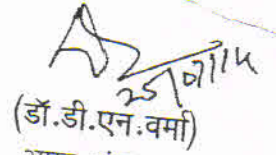 25/07/14
(डॉ.डी.एन.वर्मा)